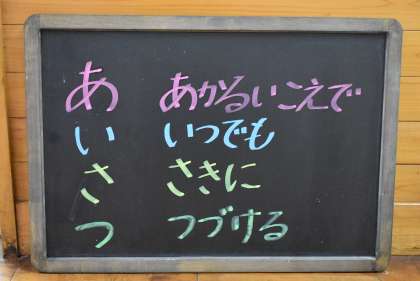 あ あかるいこえで
い いつでも
さ さきに
つ つづける